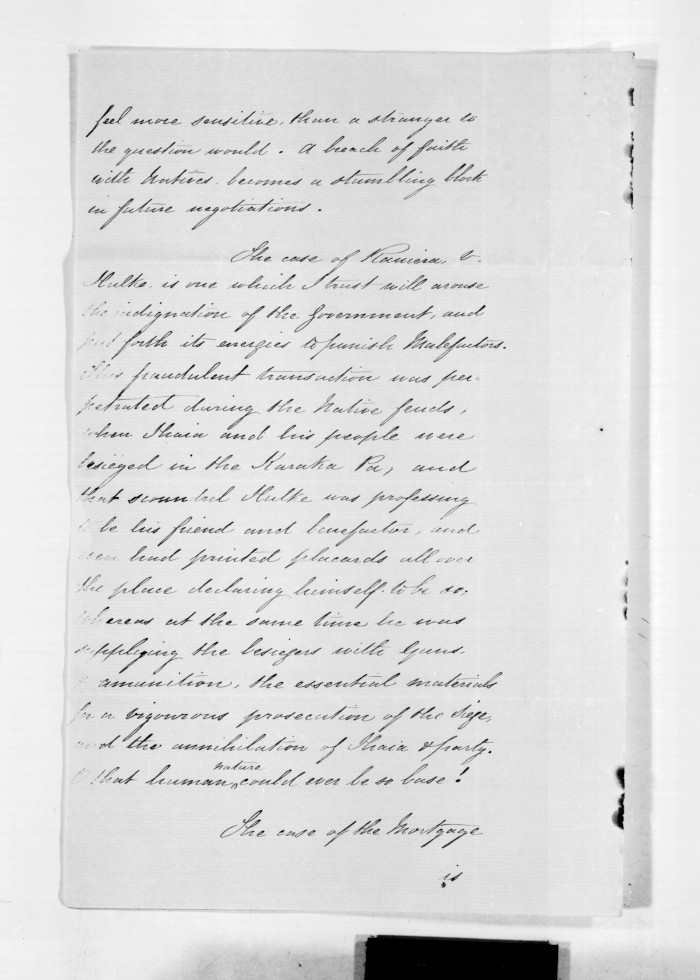 feel more sensitive, than a stranger to
the question would. A breach of faith
with Natives becomes a stumbling block
in future negotiations.
The case of Raniera, v.
Hulke, is one which I trust will arouse
the indignation of the Government, and
put forth its energies to punish Malefactors.
This fraudulent transaction was per-
petrated during the Native feuds,
when Ihaia and his people were
besieged in the Karaka Pa, and
that scoundrel Hulke was professing
to be his friend and benefactor, and
even had printed placards all over
the place declaring himself to be so;
whereas at the same time he was
supplying the besiegers with Guns,
& amunition, the essential materials
for a vigourous prosecution of the siege,
and the annihilation of Ihaia & party.
O that human nature could ever be so base!
The case of the Mortgage
is